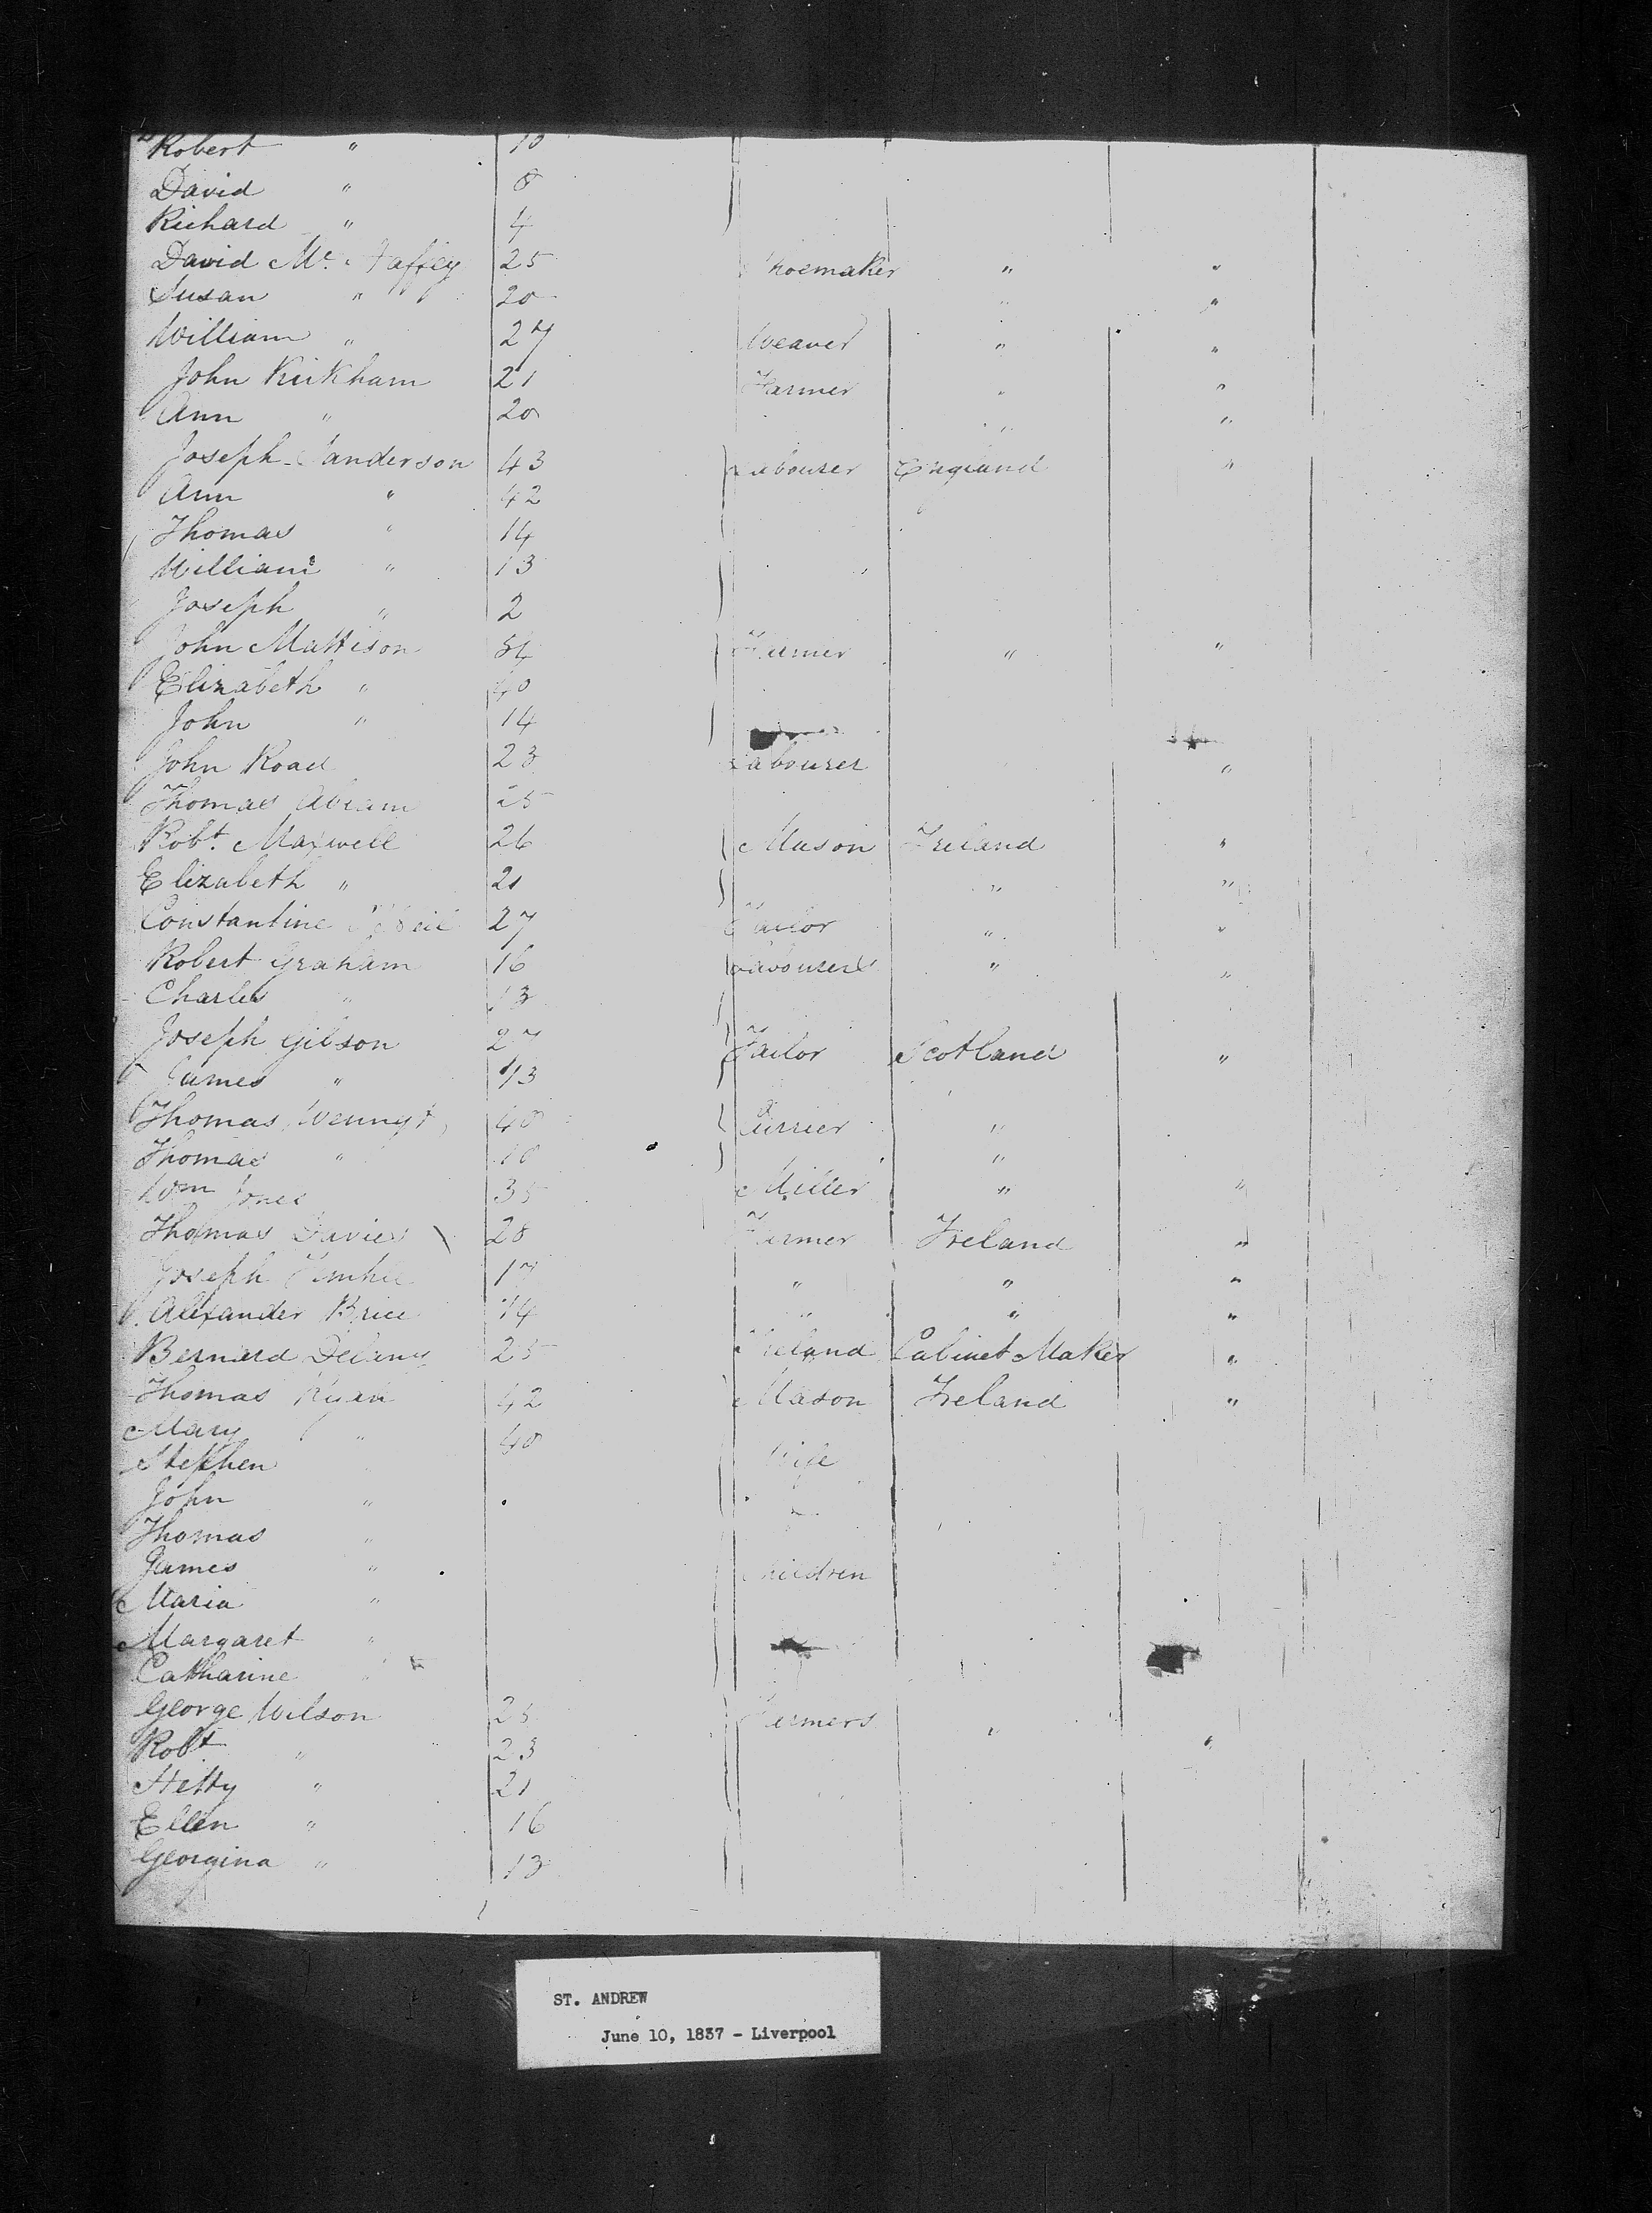 Robert " 10
David " 8
Richard " 4
David Mc. Haffey 25 Shoemaker " "
Susan " 20 " "
William " 27 Weaver " "
John Kirkham 21 Farmer " "
Ann " 20 " "
Joseph Sanderson 43 Labourer England "
Ann " 42
Thomas " 14
William " 13
Joseph " 2
John Mattison 54 Farmer " "
Elizabeth " 40
John " 14
John Road 23 Labourer "
Thomas Abram 25
Robt. Maxwell 26 Mason Ireland "
Elizabeth " 21 " "
Constantine 27 Tailor " "
Robert Graham 16 Labourers " "
Charles " 13
Joseph Gibson 27 Tailor Scotland "
James " 13
Thomas 40 Currier "
Thomas " 10 "
Wm Jones 35 Miller " "
Thomas Davies 28 Farmer Ireland "
Joseph 17 " " "
Alexander Brice 14 " " "
Bernard Delany 25 Ireland Cabinet Maker "
Thomas Ryan 42 Mason Ireland "
Mary " 40
Stephen Wife
John "
Thomas "
James " Children
Maria "
Margaret "
Catharine "
George Wilson 25 Farmers " "
Robt " 23
Hetty " 21
Ellen " 16
Georgina " 13
ST. ANDREW
June 10, 1837 - Liverpool